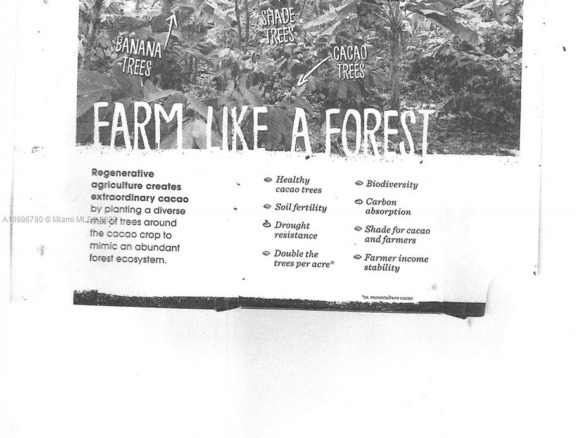 SHADE
TREES
BANANA
TREES
CACAO
TREES
FARM LIKE A FOREST
Regenerative
agriculture creates
extraordinary cacao
by planting a diverse
mix of trees around
the cacao crop to
mimic an abundant
forest ecosystem.
Healthy
cacao trees
Soil fertility
Drought
resistance
Double the
trees per acre*
Biodiversity
Carbon
absorption
Shade for cacao
and farmers
Farmer income
stability
*vs. monoculture cacao
© Miami MLS